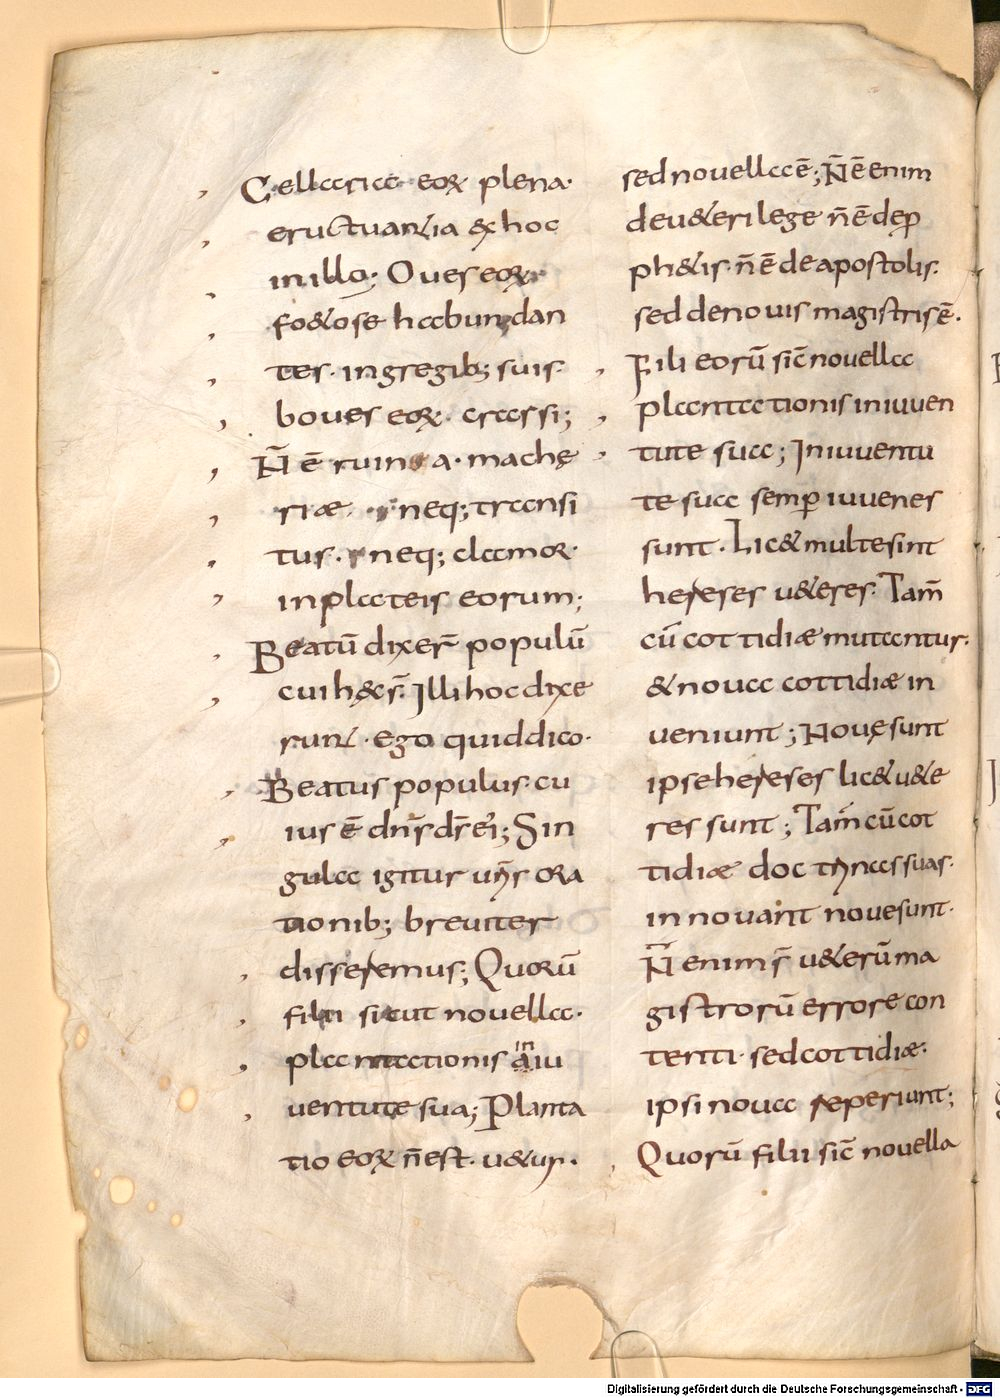 Cellaria eoꝝ plena·
eructuantia & hoc
in illo; Oues eoꝝ
foetose habundan
tes· in gregib; suis·
boues eoꝝ· crassi;
N̄ ē ruina· machę
riæ· neq; transi
tus· neq; clamor·
in plateis eorum;
Beatū dixer̄ populū
cui hęc s̄· Illi hoc dixe
runt· ego quid dico·
Beatus populus· cu
ius ē dn̄s ds̄ ei; Sin
gula igitur un̄s ora
tionib; breuiter
disseremus; Quorū
filii sicut nouella·
plantationis a in iu
uentute sua; Planta
tio eoꝝ n̄ est· uetus·
sed nouella ē; N̄ ē enim
de ueteri lege n̄ ē de ꝓ
phetis· n̄ ē de apostolis·
sed de nouis magistris ē·
Fili eorū sic̄ nouella
plantationis in iuuen
tute sua; In iuuentu
te sua semꝑ iuuenes
sunt· Licet multe sint
hereses ueteres· Tam̄
cū cottidiæ mutantur·
& noua cottidiæ in
ueniunt; Nouę sunt
ipse hereses licet uete
res sunt; Tam̄ cū cot
tidiæ doctrinas suas·
innouant noue sunt·
N̄ enim s̄ ueterū ma
gistrorū errore con
tenti· sed cottidiæ·
ipsi noua reperiunt;
Quorū filii sic̄ nouella
Digitalisierung gefördert durch die Deutsche Forschungsgemeinschaft - DFG